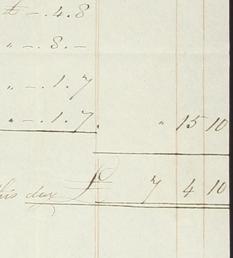 " - . 4 . 8
" - . 8 . -
" - . 1 . 7
" - . 1 . 7 . " 15 10
this day £ 7 4 10